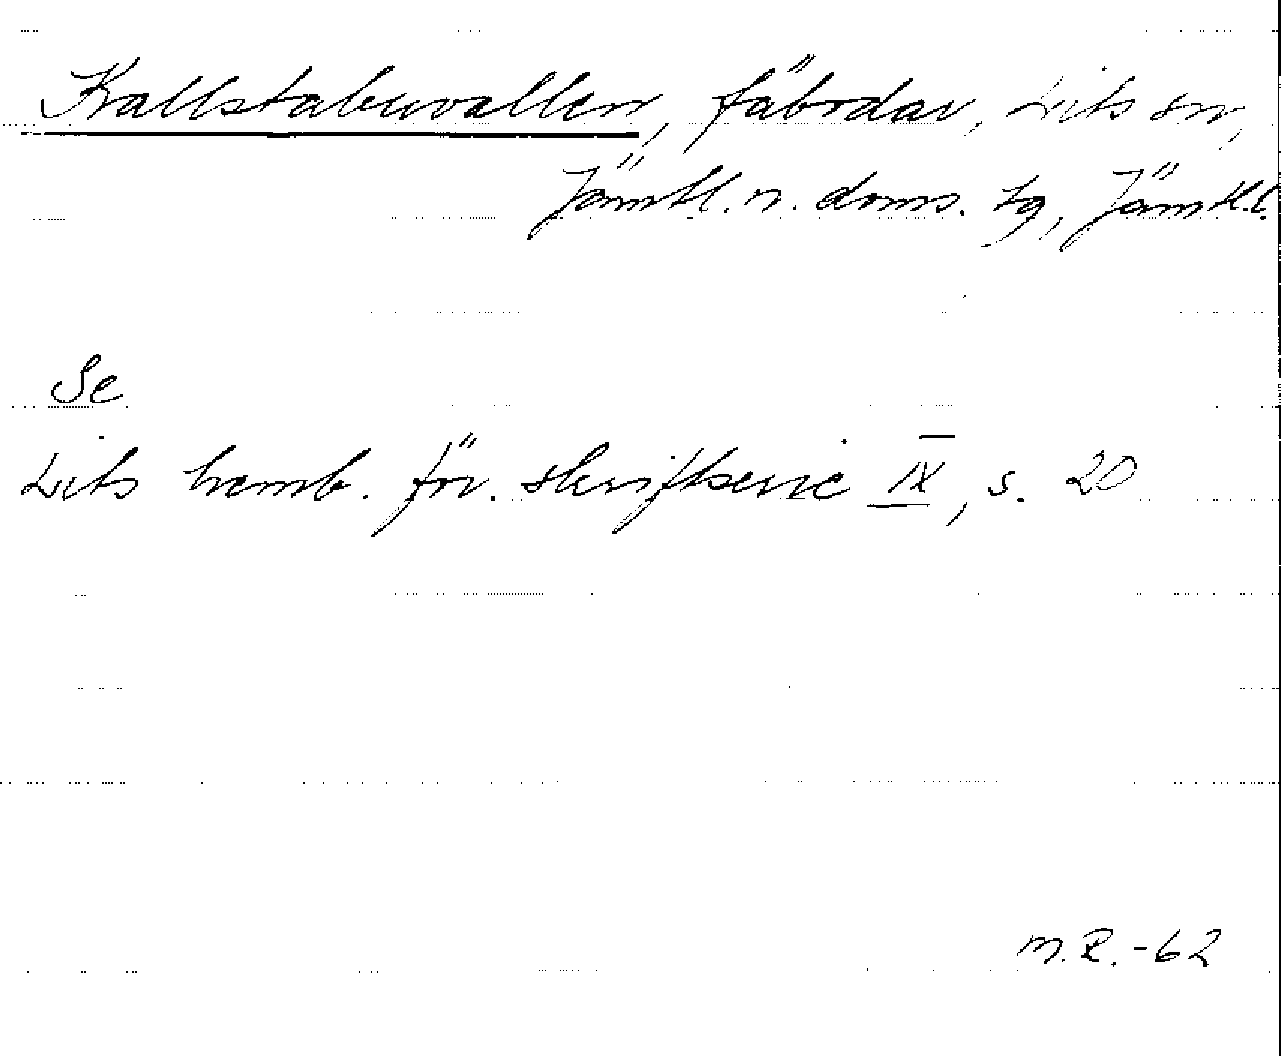 Kallstabuvallen, fäbodar, Lits sn,
Jämtl. n. doms. tg, Jämtl. l.
Se
Lits hemb. för. skriftserie IX, s. 20
M.R.-62